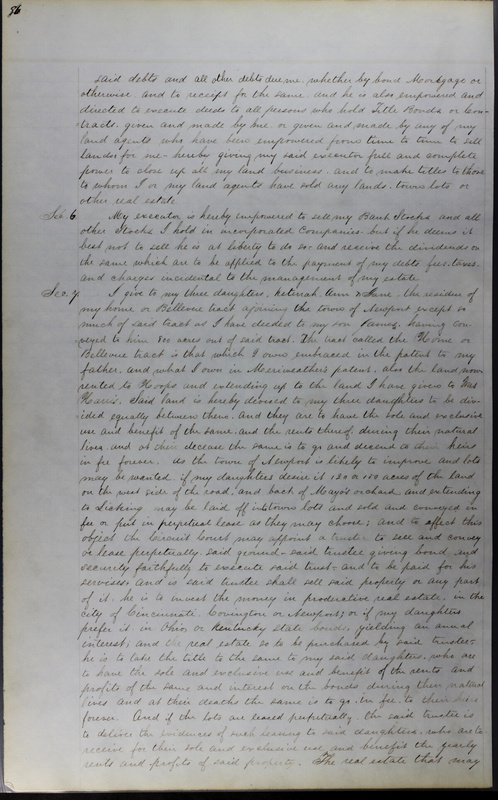 86
said debts and all other debts due me whether by bond Mortgage or
otherwise and to receipt for the same and he is also empowered and
directed to execute deeds to all persons who hold Title Bonds or Con-
tracts given and made by me or given and made by any of my
land agents who have been empowered from time to time to sell
lands for me - hereby giving my said executor full and complete
power to close up all my land business and to make titles to those
to whom I or my land agents have sold any lands, town lots or
other real estate
Sec. 6. My executor is hereby empowered to sell my Bank Stocks and all
other Stocks I hold in incorporated Companies but if he deems it
best not to sell he is at liberty to do so and reserve the dividends on
the same which are to be applied to the payment of my debts fees, taxes,
and charges incidental to the management of my estate
Sec. 7. I give to my three daughters, Keturah Ann & Jane, the residue of
my home or Bellevue tract ajoining the town of Newport except so
much of said tract as I have deeded to my son James, having con-
veyed to him 800 acres out of said tract. The tract called the Home or
Bellevue tract is that which I own embraced in the patent to my
father, and what I own in Merriweathers patent, also the land now
rented to Hoops and extending up to the land I have given to Mrs
Harris. Said land is hereby devised to my three daughters to be div-
ided equally between them. and they are to have the sole and exclusive
use and benefit of the same and the rents thereof, during their natural
lives. and at their decease the same is to go and descend to their heirs
in fee forever. As the town of Newport is likely to improve and lots
may be wanted, if my daughters desire it 150 or acres of the land
on the west side of the road, and back of Mayo's orchard and extending
to Licking may be laid off into town lots and sold and conveyed in
fee or put in perpetual lease as they may choose; and to affect this
object the Circuit Court may appoint a trustee to sell and convey
or lease perpetually, said ground - said trustee giving bond and
security faithfully to execute said trust - and to be paid for his
services, and is said trustee shall sell said property or any part
of it, he is to invest the money in productive real estate in the
city of Cincinnati, Covington or Newport; or if my daughters
prefer it in Ohio or Kentucky state bonds, yielding an annual
interest; and the real estate so to be purchased by said trustee -
he is to take the title to the same to my said daughters, who are
to have the sole and exclusive use and benefit of the rents and
profits of the same and interest on the bonds during their natural
lives and at their deaths the same is to go in fee to their heirs
forever. And if the lots are leased perpetually, the said trustee is
to deliver the evidences of such leasing to said daughters, who are to
receive for their sole and exclusive use and benefit the yearly
rents and profits of said property. The real estate that may